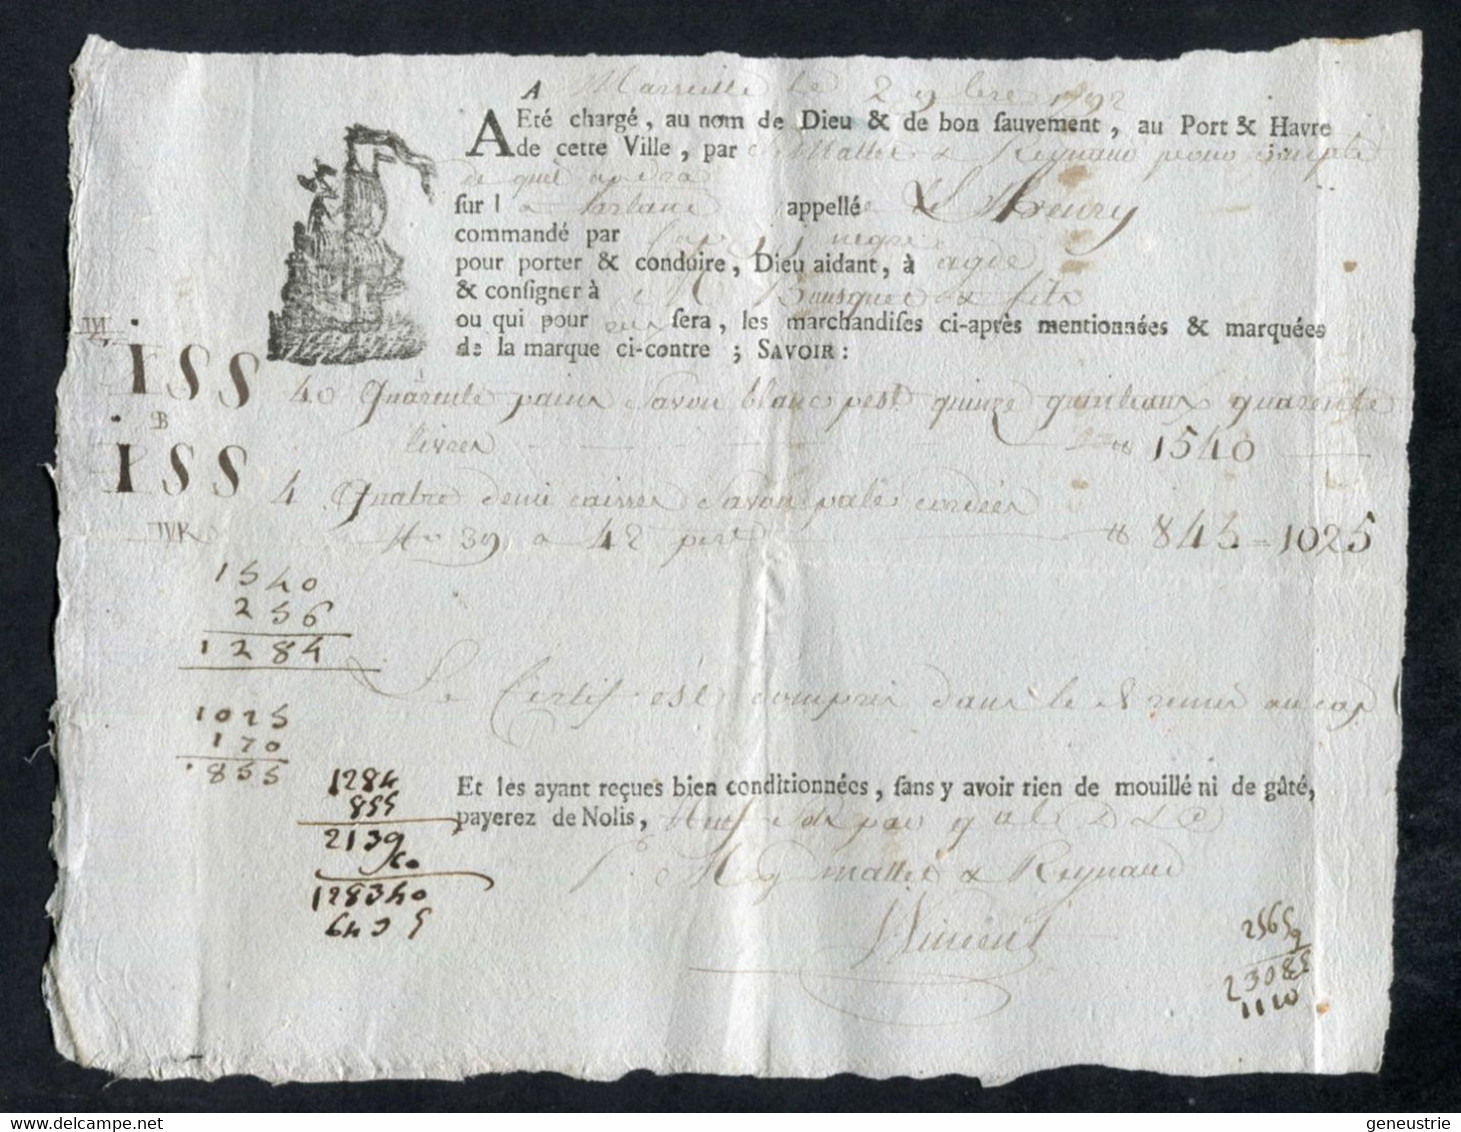 A Marseille le 2 9bre 1792
A Eté chargé, au nom de Dieu & de bon sauvement, au Port & Havre
de cette Ville, par Mallet & Reynaud pour compte
de qui apera
sur l a Tartane appellé le St Henry
commandé par Cap negre
pour porter & conduire, Dieu aidant, à agde
& consigner à Mr Bousquet & fils
ou qui pour eux sera, les marchandises ci-après mentionnées & marquées
de la marque ci-contre ; SAVOIR :
ISS 40 Quarente pains Savon blanc pest quinze quinteaux quarente
B livres 1540
ISS 4 Quatre demi caisses Savon pale cordées
No 39 a 42 pest 845 = 1025
1540
256
1284
Le Certif est compris dans le remis au cap
1025
170
855
Et les ayant reçues bien conditionnées, sans y avoir rien de mouillé ni de gâté,
payerez de Nolis, Neuf sols par
1284
855
2139
60
128340
6435
mallet & Reynaud
Vincent
2565
9
23085
1110
geneustrie